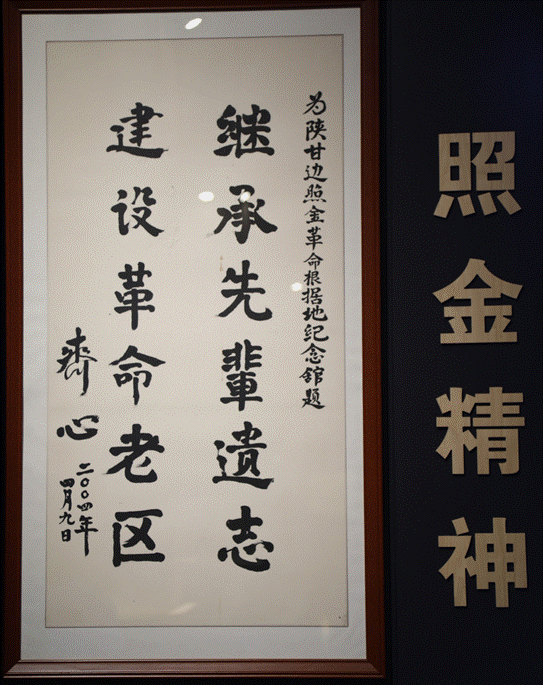 照金精神
为陕甘边照金革命根据地纪念馆题
继承先辈遗志
建设革命老区
齐心
二〇〇四年
四月九日